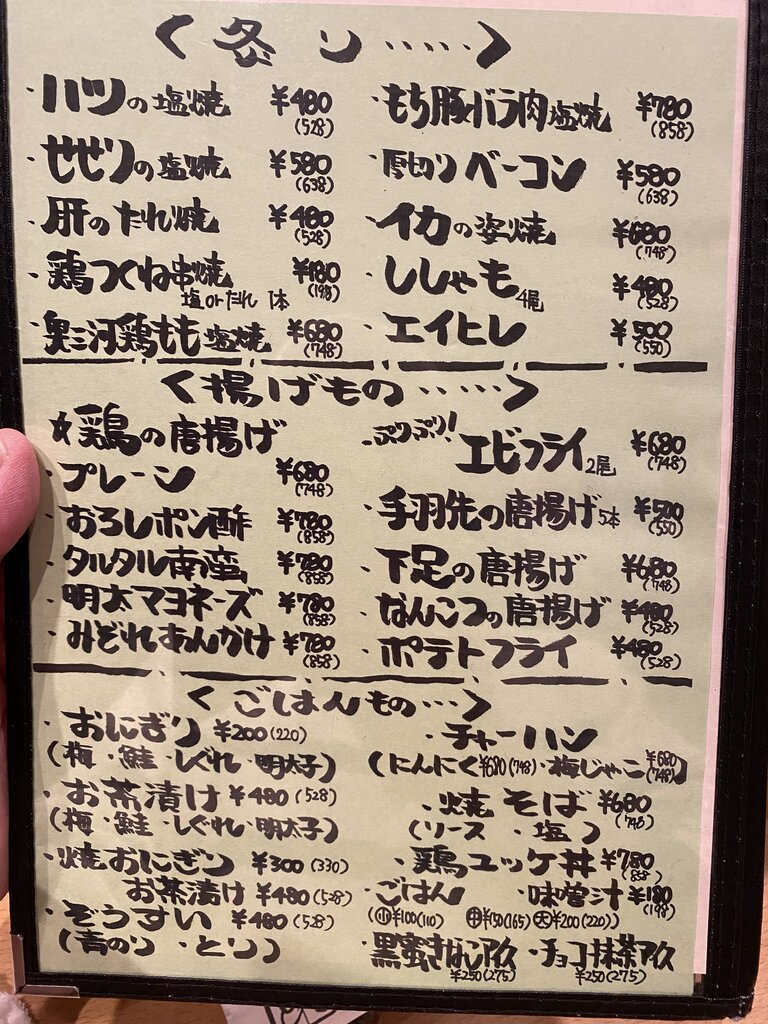 〈炙り‥‥‥〉
・ハツの塩焼 ¥480 (528)
・せせりの塩焼 ¥580 (638)
・肝のたれ焼 ¥480 (528)
・鶏つくね串焼 ¥180 (198)
塩orたれ 1本
・奥三河鶏もも塩焼 ¥680 (748)
・もち豚バラ肉塩焼 ¥780 (858)
・厚切りベーコン ¥580 (638)
・イカの姿焼 ¥680 (748)
・ししゃも 4尾 ¥480 (528)
・エイヒレ ¥500 (550)
〈揚げもの‥‥‥〉
☆鶏の唐揚げ
・プレーン ¥680 (748)
・おろしポン酢 ¥780 (858)
・タルタル南蛮 ¥780 (858)
・明太マヨネーズ ¥780 (858)
・みぞれあんかけ ¥780 (858)
・ぷりぷり!エビフライ 2尾 ¥680 (748)
・手羽先の唐揚げ 5本 ¥500 (550)
・下足の唐揚げ ¥680 (748)
・なんこつの唐揚げ ¥480 (528)
・ポテトフライ ¥480 (528)
〈ごはんもの‥‥〉
・おにぎり ¥200 (220)
(梅・鮭・しぐれ・明太子)
・お茶漬け ¥480 (528)
(梅・鮭・しぐれ・明太子)
・焼おにぎり ¥300 (330)
お茶漬け ¥480 (528)
・ぞうすい ¥480 (528)
(青のり・とり)
・チャーハン
(にんにく¥680(748)・梅じゃこ¥680(748))
・焼そば ¥680 (748)
(ソース・塩)
・鶏ユッケ丼 ¥780 (858)
・ごはん ・味噌汁 ¥180 (198)
(小¥100(110) 中¥150(165) 大¥200(220))
・黒蜜きなこアイス ・チョコ抹茶アイス
¥250(275) ¥250(275)